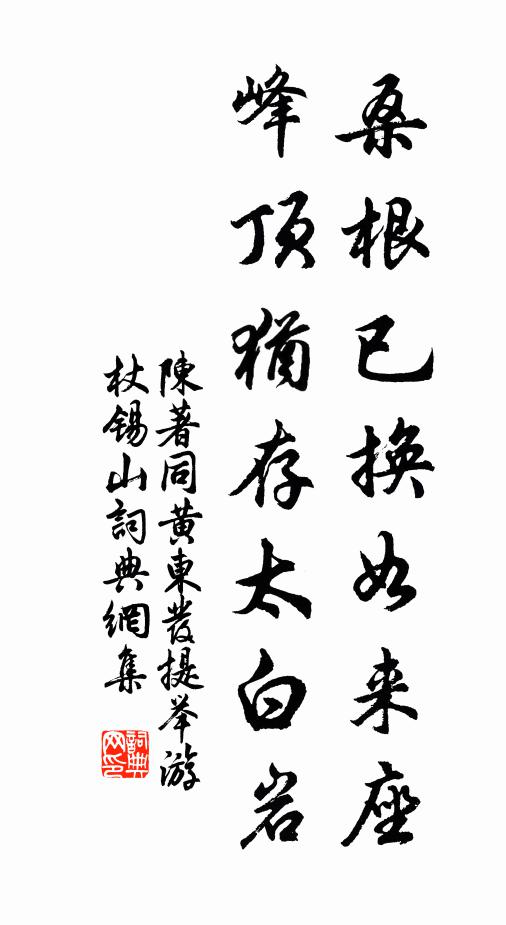 桑根已换如来座
峰顶猶存太白岩
陳著同黄東發提举游
杖锡山詞典網集
詞典
网印